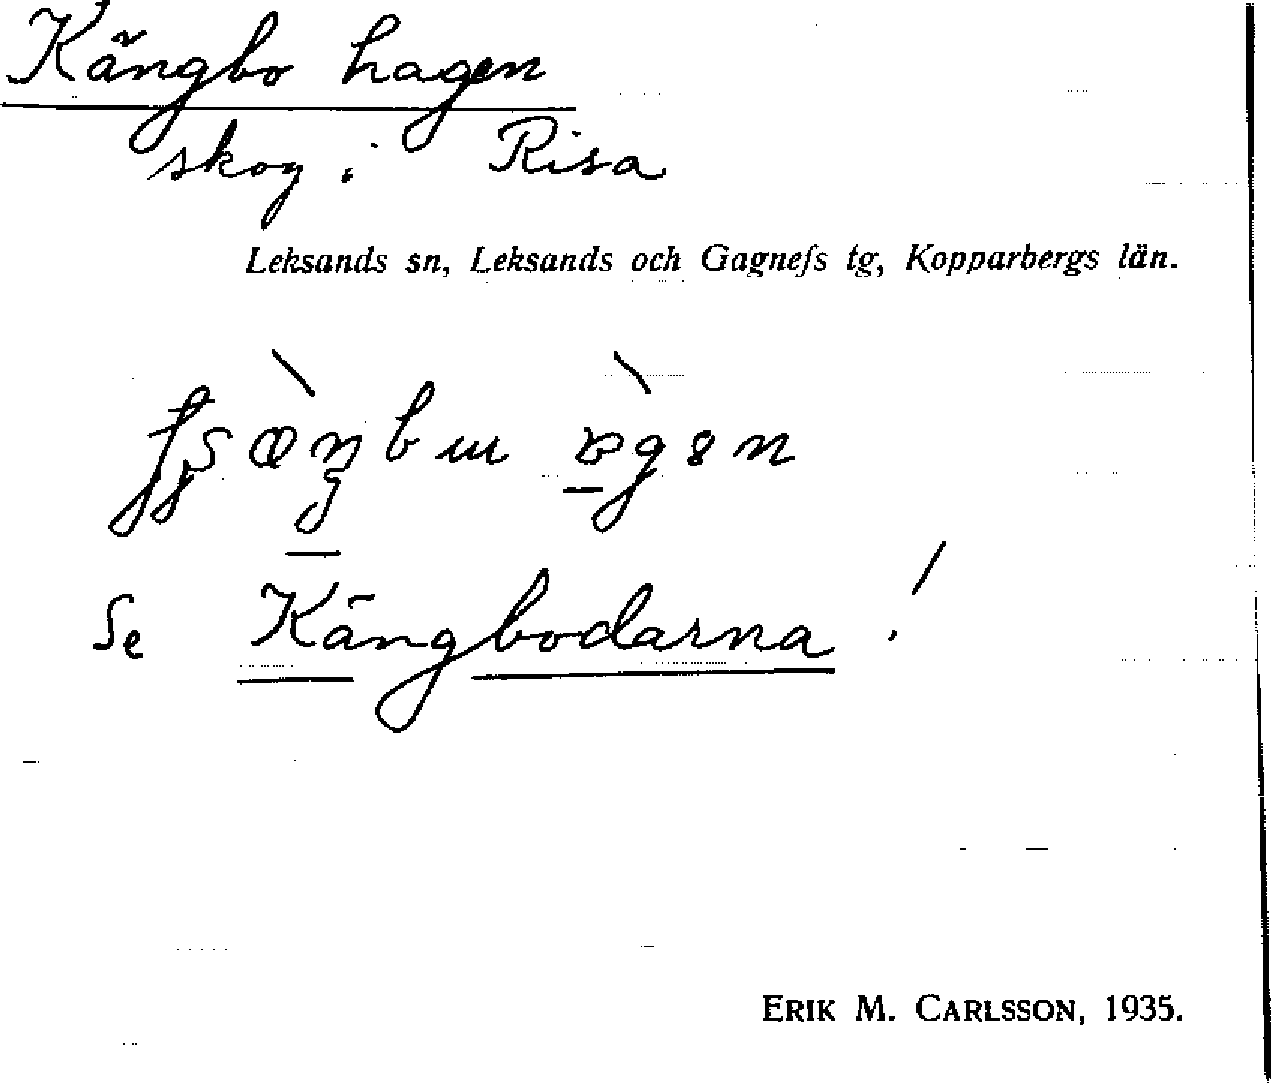 Kängbo hagen
skog i Risa
Leksands sn, Leksands och Gagnefs tg, Kopparbergs län.
Se Kängbodarna !
ERIK M. CARLSSON, 1935.